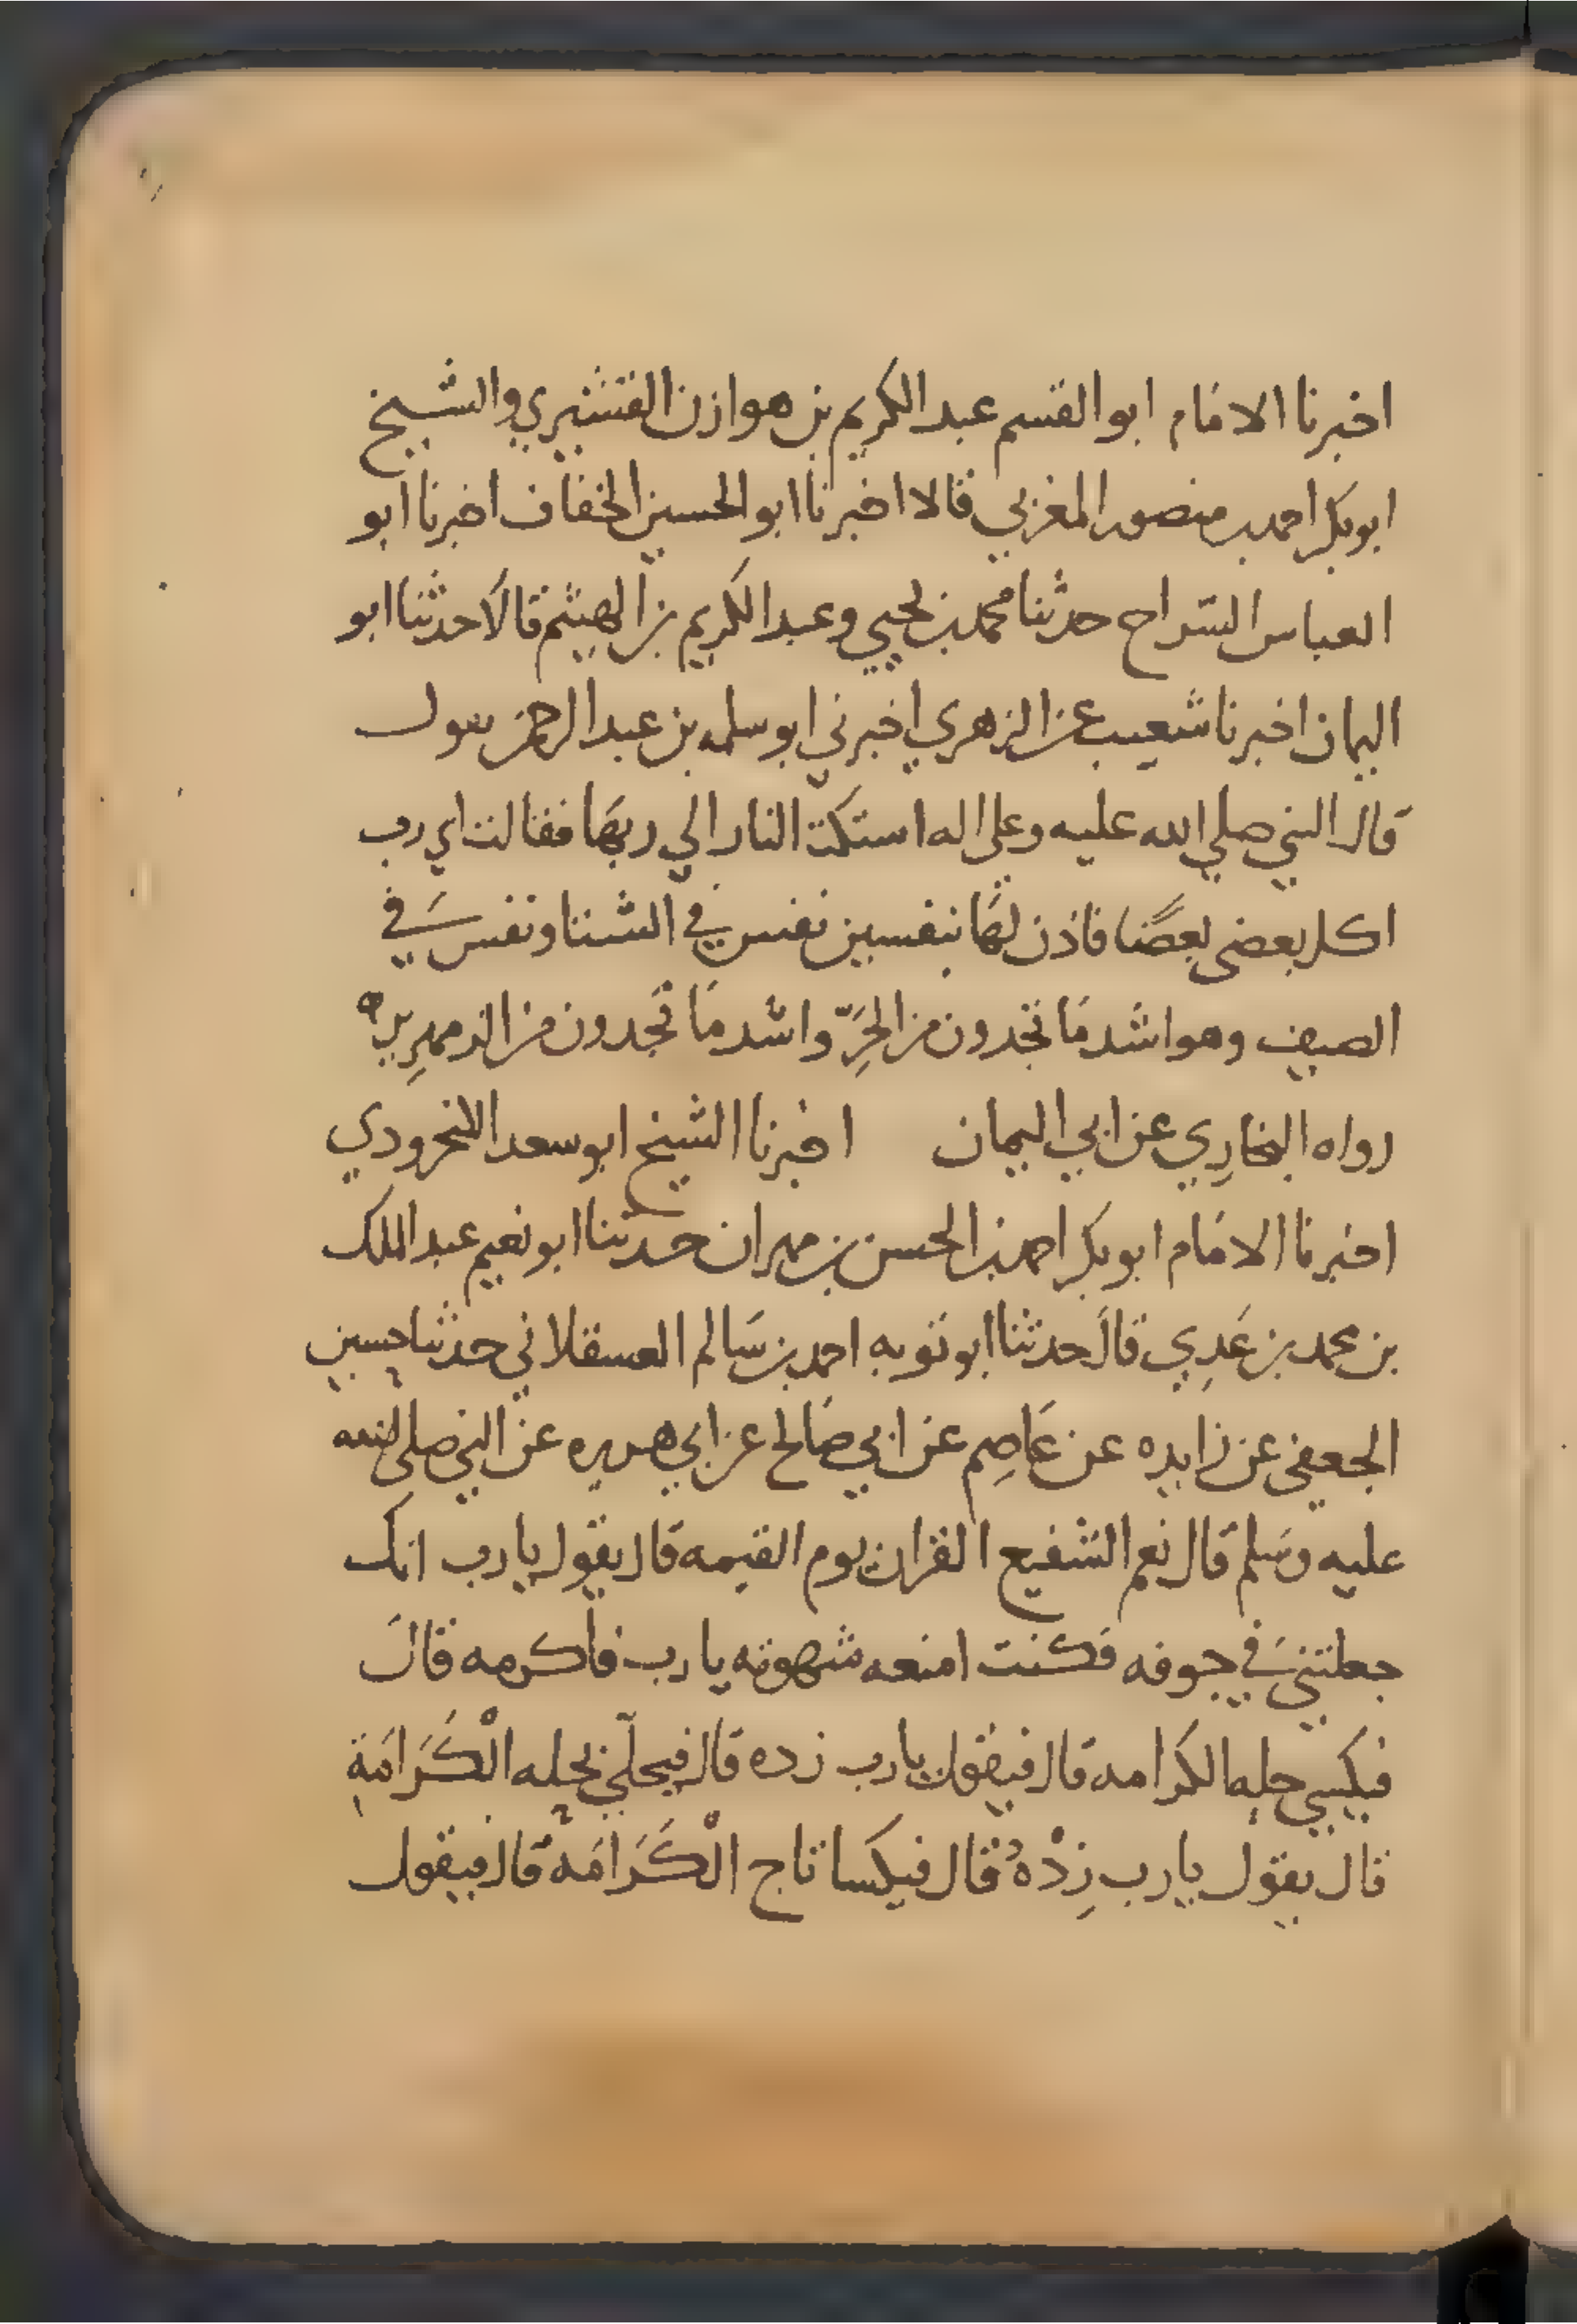 اخبرنا الامام ابو القسم عبد الكريم بن هوازن القشيري والشيخ
ابو بكر احمد بن منصور المغربي قالا اخبرنا ابو الحسين الخفاف اخبرنا ابو
العباس السراج حدثنا محمد بن يحيي وعبد الكريم بن الهيثم قالا حدثنا ابو
اليمان اخبرنا شعيب عن الزهري اخبرني ابو سلمه بن عبد الرحمن يقول
قال النبي صلي الله عليه وعلى اله استكت النار الي ربها فقالت اي رب
اكل بعضي بعضا فاذن لها بنفسين نفس في الشتا ونفس في
الصيف وهو اشد ما تجدون من الحرّ واشد ما تجدون من الزمهرير ه
رواه البخاري عن ابي اليمان اخبرنا الشيخ ابو سعد النحرودي
اخبرنا الامام ابو بكر احمد بن الحسن بن مهران حدثنا ابو نعيم عبد الملك
بن محمد بن عَدِي قال حدثنا ابو توبه احمد بن سالم العسقلاني حدثنا حسين
الجعفي عن زايده عن عَاصِم عن ابي صالح عن ابي هريره عن النبي صلى الله
عليه وسلم قال نعم الشفيع القران يوم القيمه قال يقول يا رب انك
جعلتني في جوفه فكنت امنعه شهوته يا رب فاكرمه قال
فيكسي حله الكرامه قال فيقول يا رب زده قال فيحلّي بحله الْكَرَامَةِ
قال يقول يا رب زِدْهُ قال فيكسا تاج الْكَرَامَه قال فيقول